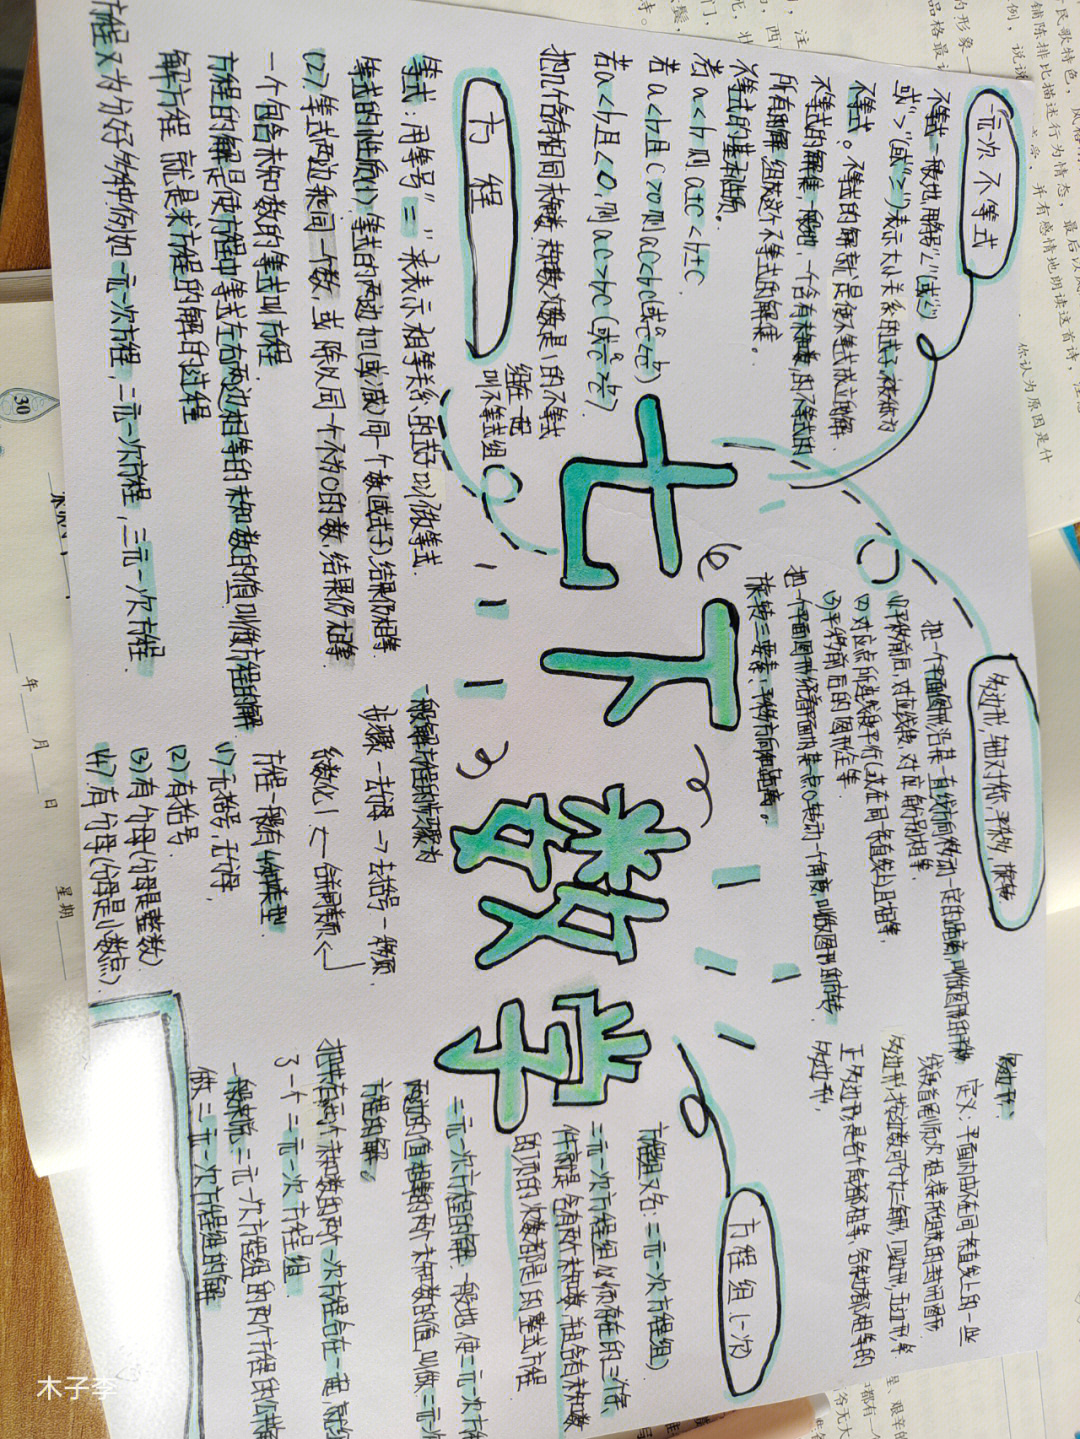 一元一次不等式
不等式一般地,用符号"<"(或"≤")
或">"(或"≥")表示大小关系的式子,被称为
不等式。不等式的解就是使不等式成立的解
不等式的解集,一般地,一个含有未知数的不等式的
所有的解,组成这个不等式的解集。
不等式的基本性质。
若a<b 则 a±c<b±c
若a<b且c>0则ac<bc
若a<b且c<0,则ac>bc
把几个含有相同未知数,未知数次数是1的不等式
组在一起
叫不等式组
方程
等式:用等号"="来表示相等关系的式子叫做等式.
等式的性质(1)等式的两边加(或减)同一个数(或式子)结果仍相等.
(2)等式两边乘同一个数,或除以同一个不为0的数,结果仍相等
一个包含未知数的等式叫方程
方程的解是使方程中等式左右两边相等的未知数的值叫做方程的解
解方程 就是求方程的解的过程
方程又为分好多种,例如一元一次方程,二元一次方程,三元一次方程
七下数学
多边形,轴对称,平移,旋转
把一个平面图形沿某一直线方向移动一定的距离,叫做图形的平移
(1)平移前后,对应线段,对应角分别相等.
(2)对应点所连线段平行(或在同一条直线)上且相等.
(3)平移前后的图形全等
把一个平面图形绕着平面内某一点O转动一个角度,叫做图形的旋转.
旋转三要素:
一般解方程的步骤为
步骤一去分母→去括号一移项
系数化1←合并同类←
方程一般有4种类型
(1)无括号,无分母.
(2)有括号
(3)有分母(分母是整数)
(4)有分母(分母是小数点)
多边形:
定义:平面内由不在同一条直线上的一些
线段首尾顺次相接所组成的封闭图形
多边形,按边数可分为三角形,四边形,五边形等
正多边形,是各个角都相等,各条边都相等的
多边形.
方程组(一次)
方程组又名:二元一次方程组)
二元一次方程组必须存在的三个条
件就是 含有两个未知数,并且含有未知数
的项的次数都是1的整式方程
二元一次方程的解 一般地使二元一次方
两边的值相等的两个未知数的值,叫做二元一
方程的解。
把带有两个未知数的两个一次方程合在一起就组
了一个二元一次方程组
一般来说二元一次方程组的两个方程的公共
做二元一次方程组的解
30
年 月 日 星期
你认为原因是什
木子李